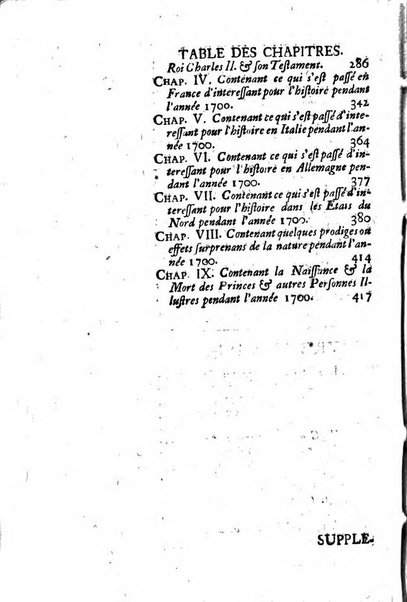 TABLE DES CHAPITRES.
Roi Charles II. & son Testament. 286
CHAP. IV. Contenant ce qui s'est passé en
France d'interessant pour l'histoire pendant
l'année 1700. 342
CHAP. V. Contenant ce qui s'est passé d'inte-
ressant pour l'histoire en Italie pendant l'an-
née 1700. 364
CHAP. VI. Contenant ce qui s'est passé d'in-
teressant pour l'histoire en Allemagne pen-
dant l'année 1700. 377
CHAP. VII. Contenant ce qui s'est passé d'in-
teressant pour l'histoire dans les Etats du
Nord pendant l'année 1700. 380
CHAP. VIII. Contenant quelques prodiges ou
effets surprenans de la nature pendant l'an-
née 1700. 414
CHAP. IX. Contenant la Naissance & la
Mort des Princes & autres Personnes Il-
lustres pendant l'année 1700. 417
SUPPLE-